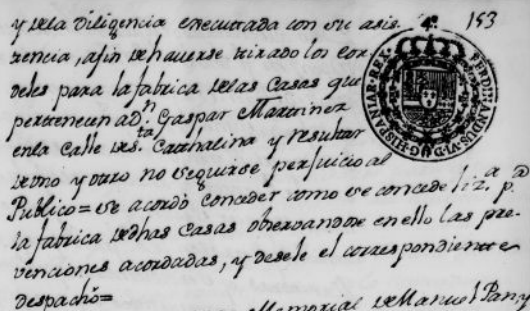 y dela Diligencia executada con su asis-
4º. 153
tencia, afin de hauerse tirado los cor-
deles para la fabrica delas Casas que
pertenecen a Dn. Gaspar Martinez
enla Calle de Sta. Catthalina y resultar
de uno y otro no seguirse perjuicio al
Publico = se acordò conceder como se concede liz.a p.a
la fabrica de dhas Casas observandose en ello las pre-
venciones acordadas, y desele el correspondiente
despachô =
Memorial de Manuel Pany
FERDINANDUS·VI·D·G·HISPANIAR·REX·